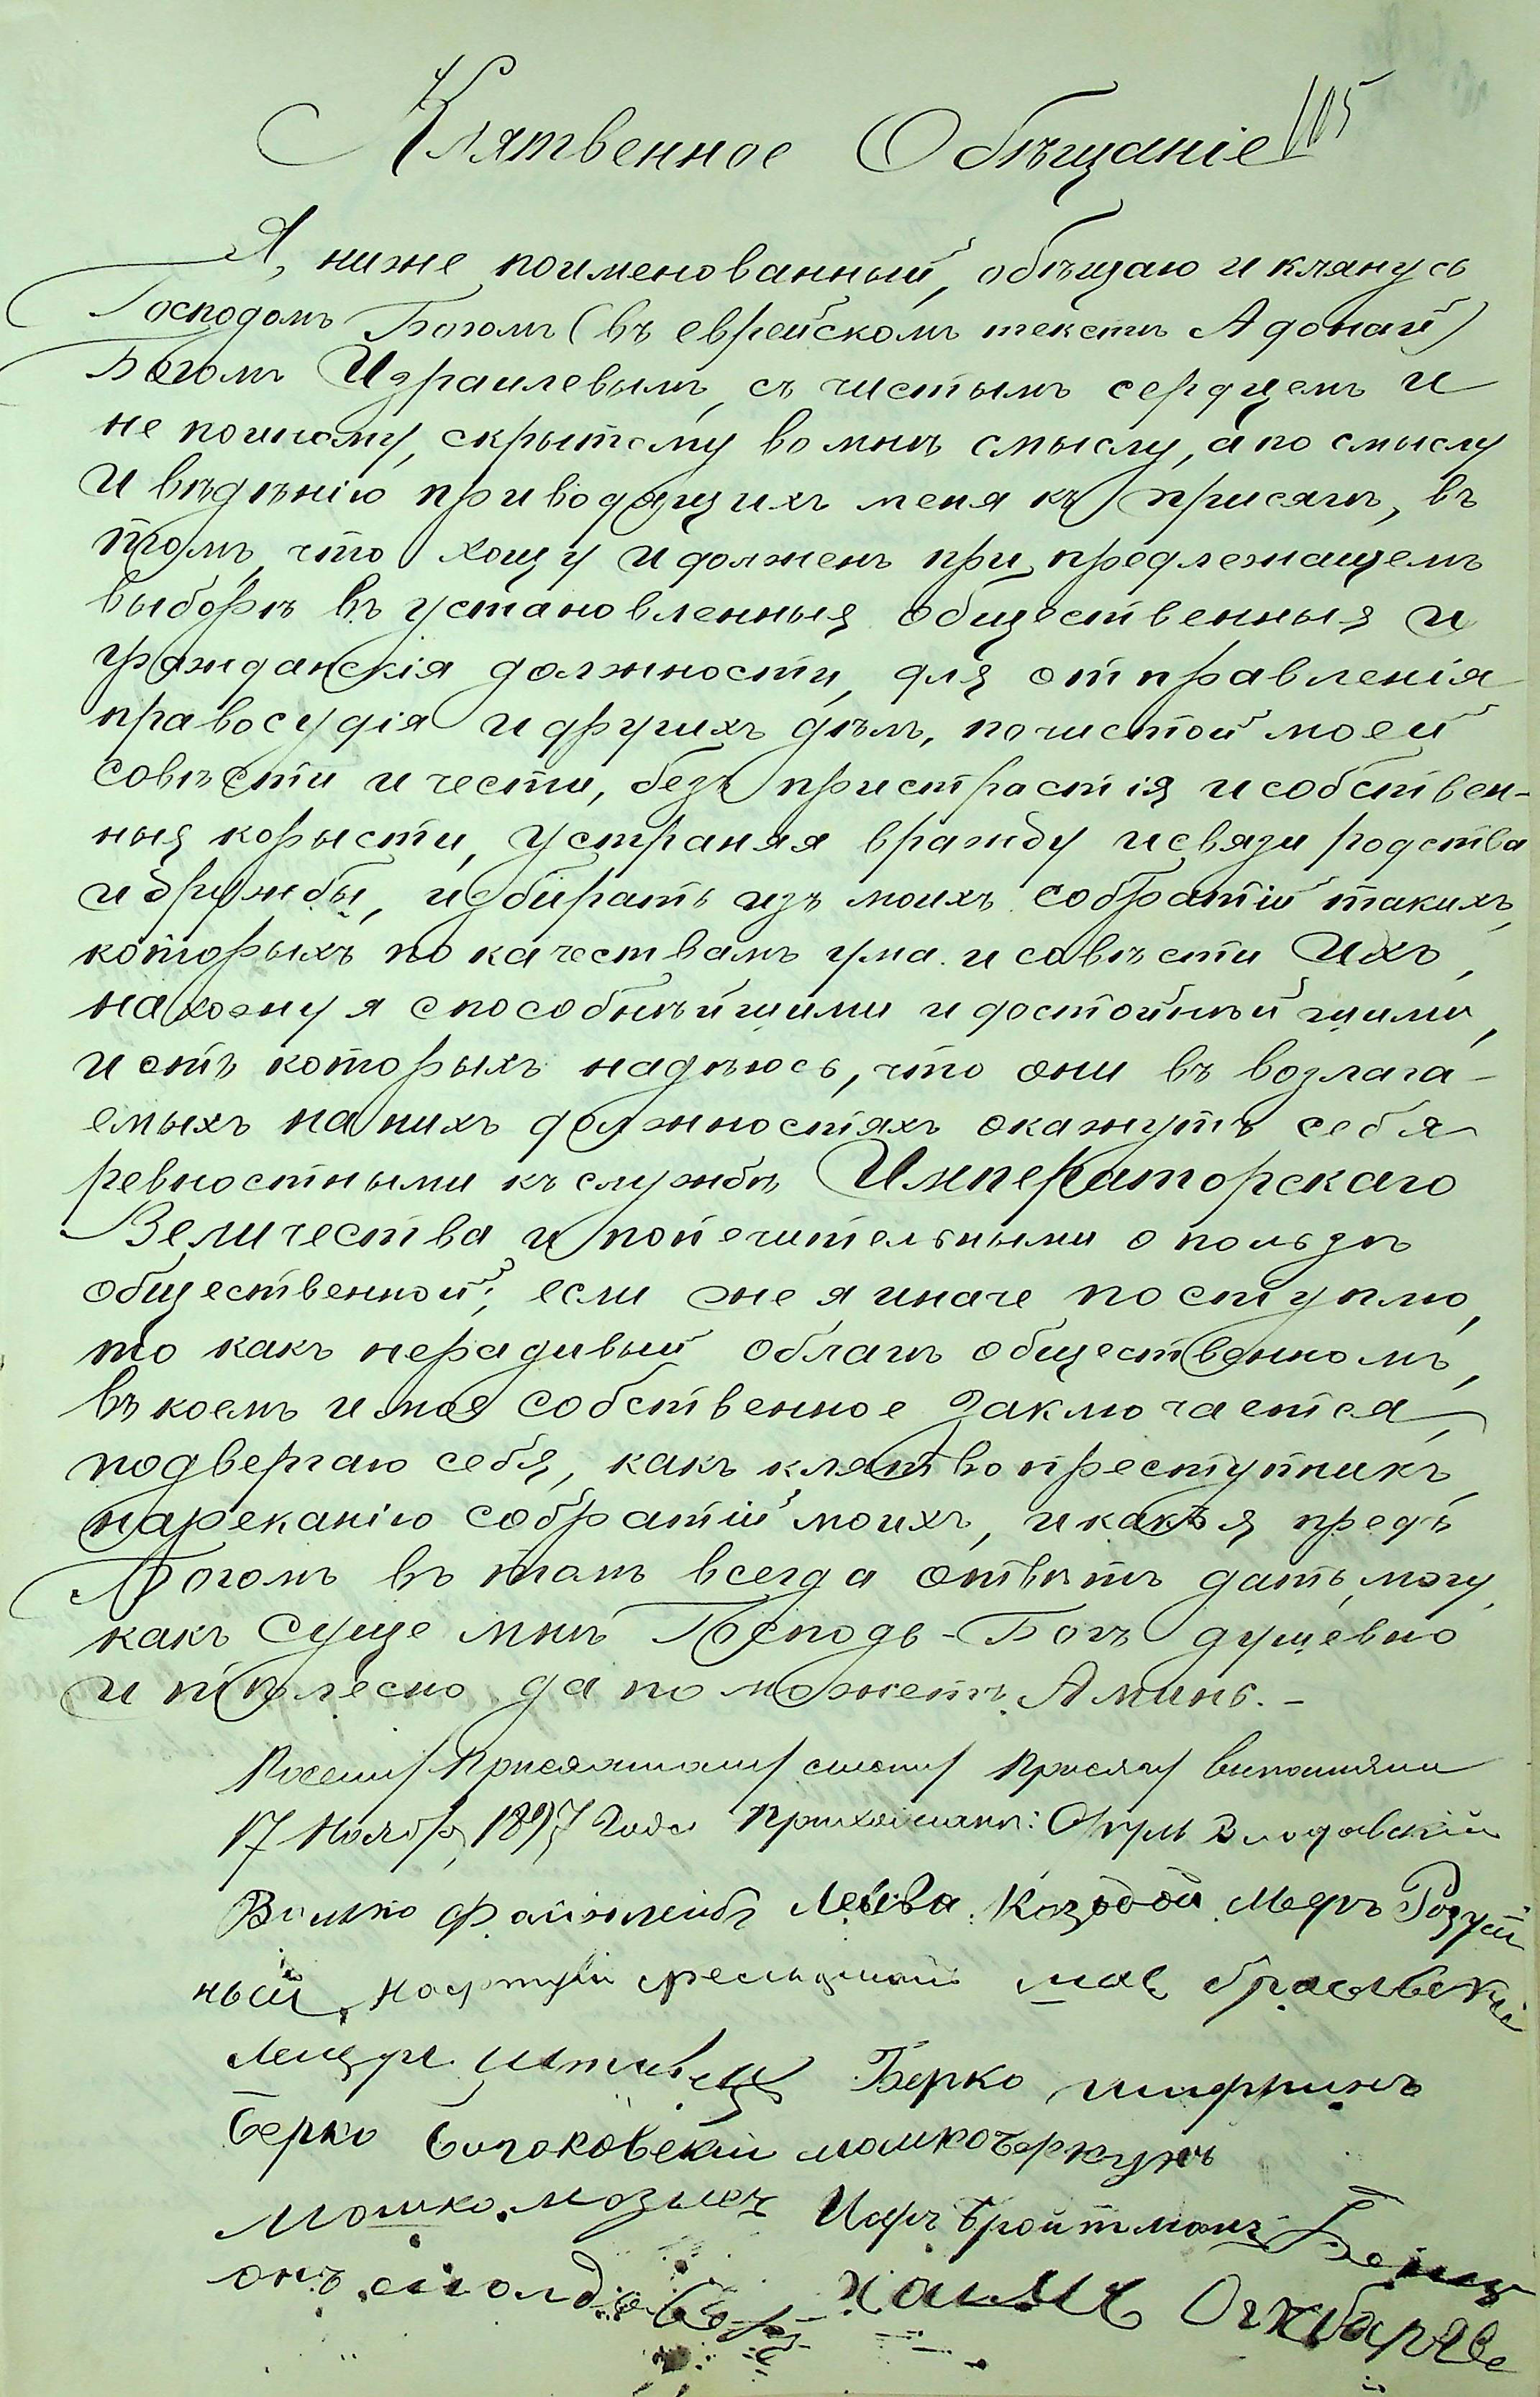 Клятвенное Обѣщаніе 105
Я, ниже поименованный, обѣщаю и клянусь
Господомъ Богомъ (въ еврейскомъ текстѣ Адонай)
Богомъ Израилевымъ, съ чистымъ сердцемъ и
не по иному, скрытому во мнѣ смыслу, а по смыслу
и вѣдѣнію приводящихъ меня къ присягѣ, въ
томъ, что хощу и долженъ при предлежащемъ
выборѣ въ установленныя общественныя и
гражданскія должности, для отправленія
правосудія и другихъ дѣлъ, по чистой моей
совѣсти и чести, безъ пристрастія и собствен-
ныя корысти, устраняя вражду и связи родства
и дружбы, избирать изъ моихъ собратій такихъ,
которыхъ по качествамъ ума и совѣсти ихъ,
нахожу я способнѣйшими и достойнѣйшими,
и отъ которыхъ надѣюсь, что они въ возлага-
емыхъ на нихъ должностяхъ окажутъ себя
ревностными къ службѣ Императорскаго
Величества и попечительными о пользѣ
общественной; если же я иначе поступлю,
то какъ нерадивый о благѣ общественномъ,
въ коемъ и мое собственное заключается,
подвергаю себя, какъ клятвопреступникъ,
нареканію собратій моихъ, и какъ я предъ
Богомъ въ томъ всегда отвѣтъ дать могу,
какъ суще мнѣ Господь-Богъ душевно
и тѣлесно да поможетъ. Аминь. -
По сему присяжному листу присягу выполнили
17 Ноября 1897 Года прихожане:
Лейба Козодой Мееръ Розум
ный
Берко шифринъ
Берко мошко Черкунъ
Мошко Бройтманъ Бенц
онъ хаимъ